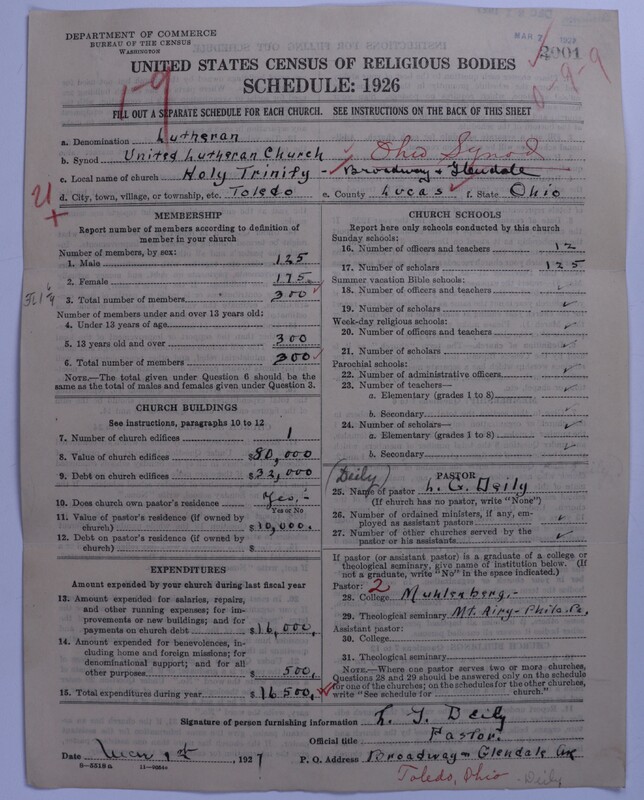 DEPARTMENT OF COMMERCE
BUREAU OF THE CENSUS
WASHINGTON
MAR 2 1927
3001
UNITED STATES CENSUS OF RELIGIOUS BODIES
SCHEDULE: 1926
1-9
0-9-9
FILL OUT A SEPARATE SCHEDULE FOR EACH CHURCH. SEE INSTRUCTIONS ON THE BACK OF THIS SHEET
a. Denomination Lutheran
b. Synod United Lutheran Church ✓ Ohio Synod
c. Local name of church Holy Trinity - Broadway & Glendale
d. City, town, village, or township, etc. Toledo e. County Lucas f. State Ohio
MEMBERSHIP
Report number of members according to definition of
member in your church
Number of members, by sex:
1. Male 125
2. Female 175
3. Total number of members 300
Number of members under and over 13 years old:
4. Under 13 years of age
5. 13 years old and over 300
6. Total number of members 300
NOTE.—The total given under Question 6 should be the
same as the total of males and females given under Question 3.
CHURCH BUILDINGS
See instructions, paragraphs 10 to 12
7. Number of church edifices 1
8. Value of church edifices $80,000
9. Debt on church edifices $32,000
10. Does church own pastor's residence Yes,-
Yes or No
11. Value of pastor's residence (if owned by
church) $10,000.
12. Debt on pastor's residence (if owned by
church) $
EXPENDITURES
Amount expended by your church during last fiscal year
13. Amount expended for salaries, repairs,
and other running expenses; for im-
provements or new buildings; and for
payments on church debt $16,000.
14. Amount expended for benevolences, in-
cluding home and foreign missions; for
denominational support; and for all
other purposes $ 500.
15. Total expenditures during year $16500.
CHURCH SCHOOLS
Report here only schools conducted by this church
Sunday schools:
16. Number of officers and teachers 12
17. Number of scholars 125
Summer vacation Bible schools:
18. Number of officers and teachers ✓
19. Number of scholars ✓
Week-day religious schools:
20. Number of officers and teachers ✓
21. Number of scholars ✓
Parochial schools:
22. Number of administrative officers ✓
23. Number of teachers—
a. Elementary (grades 1 to 8) ✓
b. Secondary ✓
24. Number of scholars—
a. Elementary (grades 1 to 8) ✓
b. Secondary ✓
(Deily)
PASTOR
25. Name of pastor L. G. Deily
(If church has no pastor, write "None")
26. Number of ordained ministers, if any, em-
ployed as assistant pastors ✓
27. Number of other churches served by the
pastor or his assistants ✓
If pastor (or assistant pastor) is a graduate of a college or
theological seminary, give name of institution below. (If
not a graduate, write "No" in the space indicated.)
Pastor: 2
28. College Muhlenberg,-
29. Theological seminary Mt. Airy- Phila. Pa,
Assistant pastor:
30. College
31. Theological seminary
NOTE.—Where one pastor serves two or more churches,
Questions 28 and 29 should be answered only on the schedule
for one of the churches; on the schedules for the other churches,
write "See schedule for church."
Signature of person furnishing information L. G. Deily
Official title Pastor.
Date Mar 1st, 1927 P. O. Address Broadway & Glendale Av
8—5518a 11—9084a
Toledo, Ohio Deily